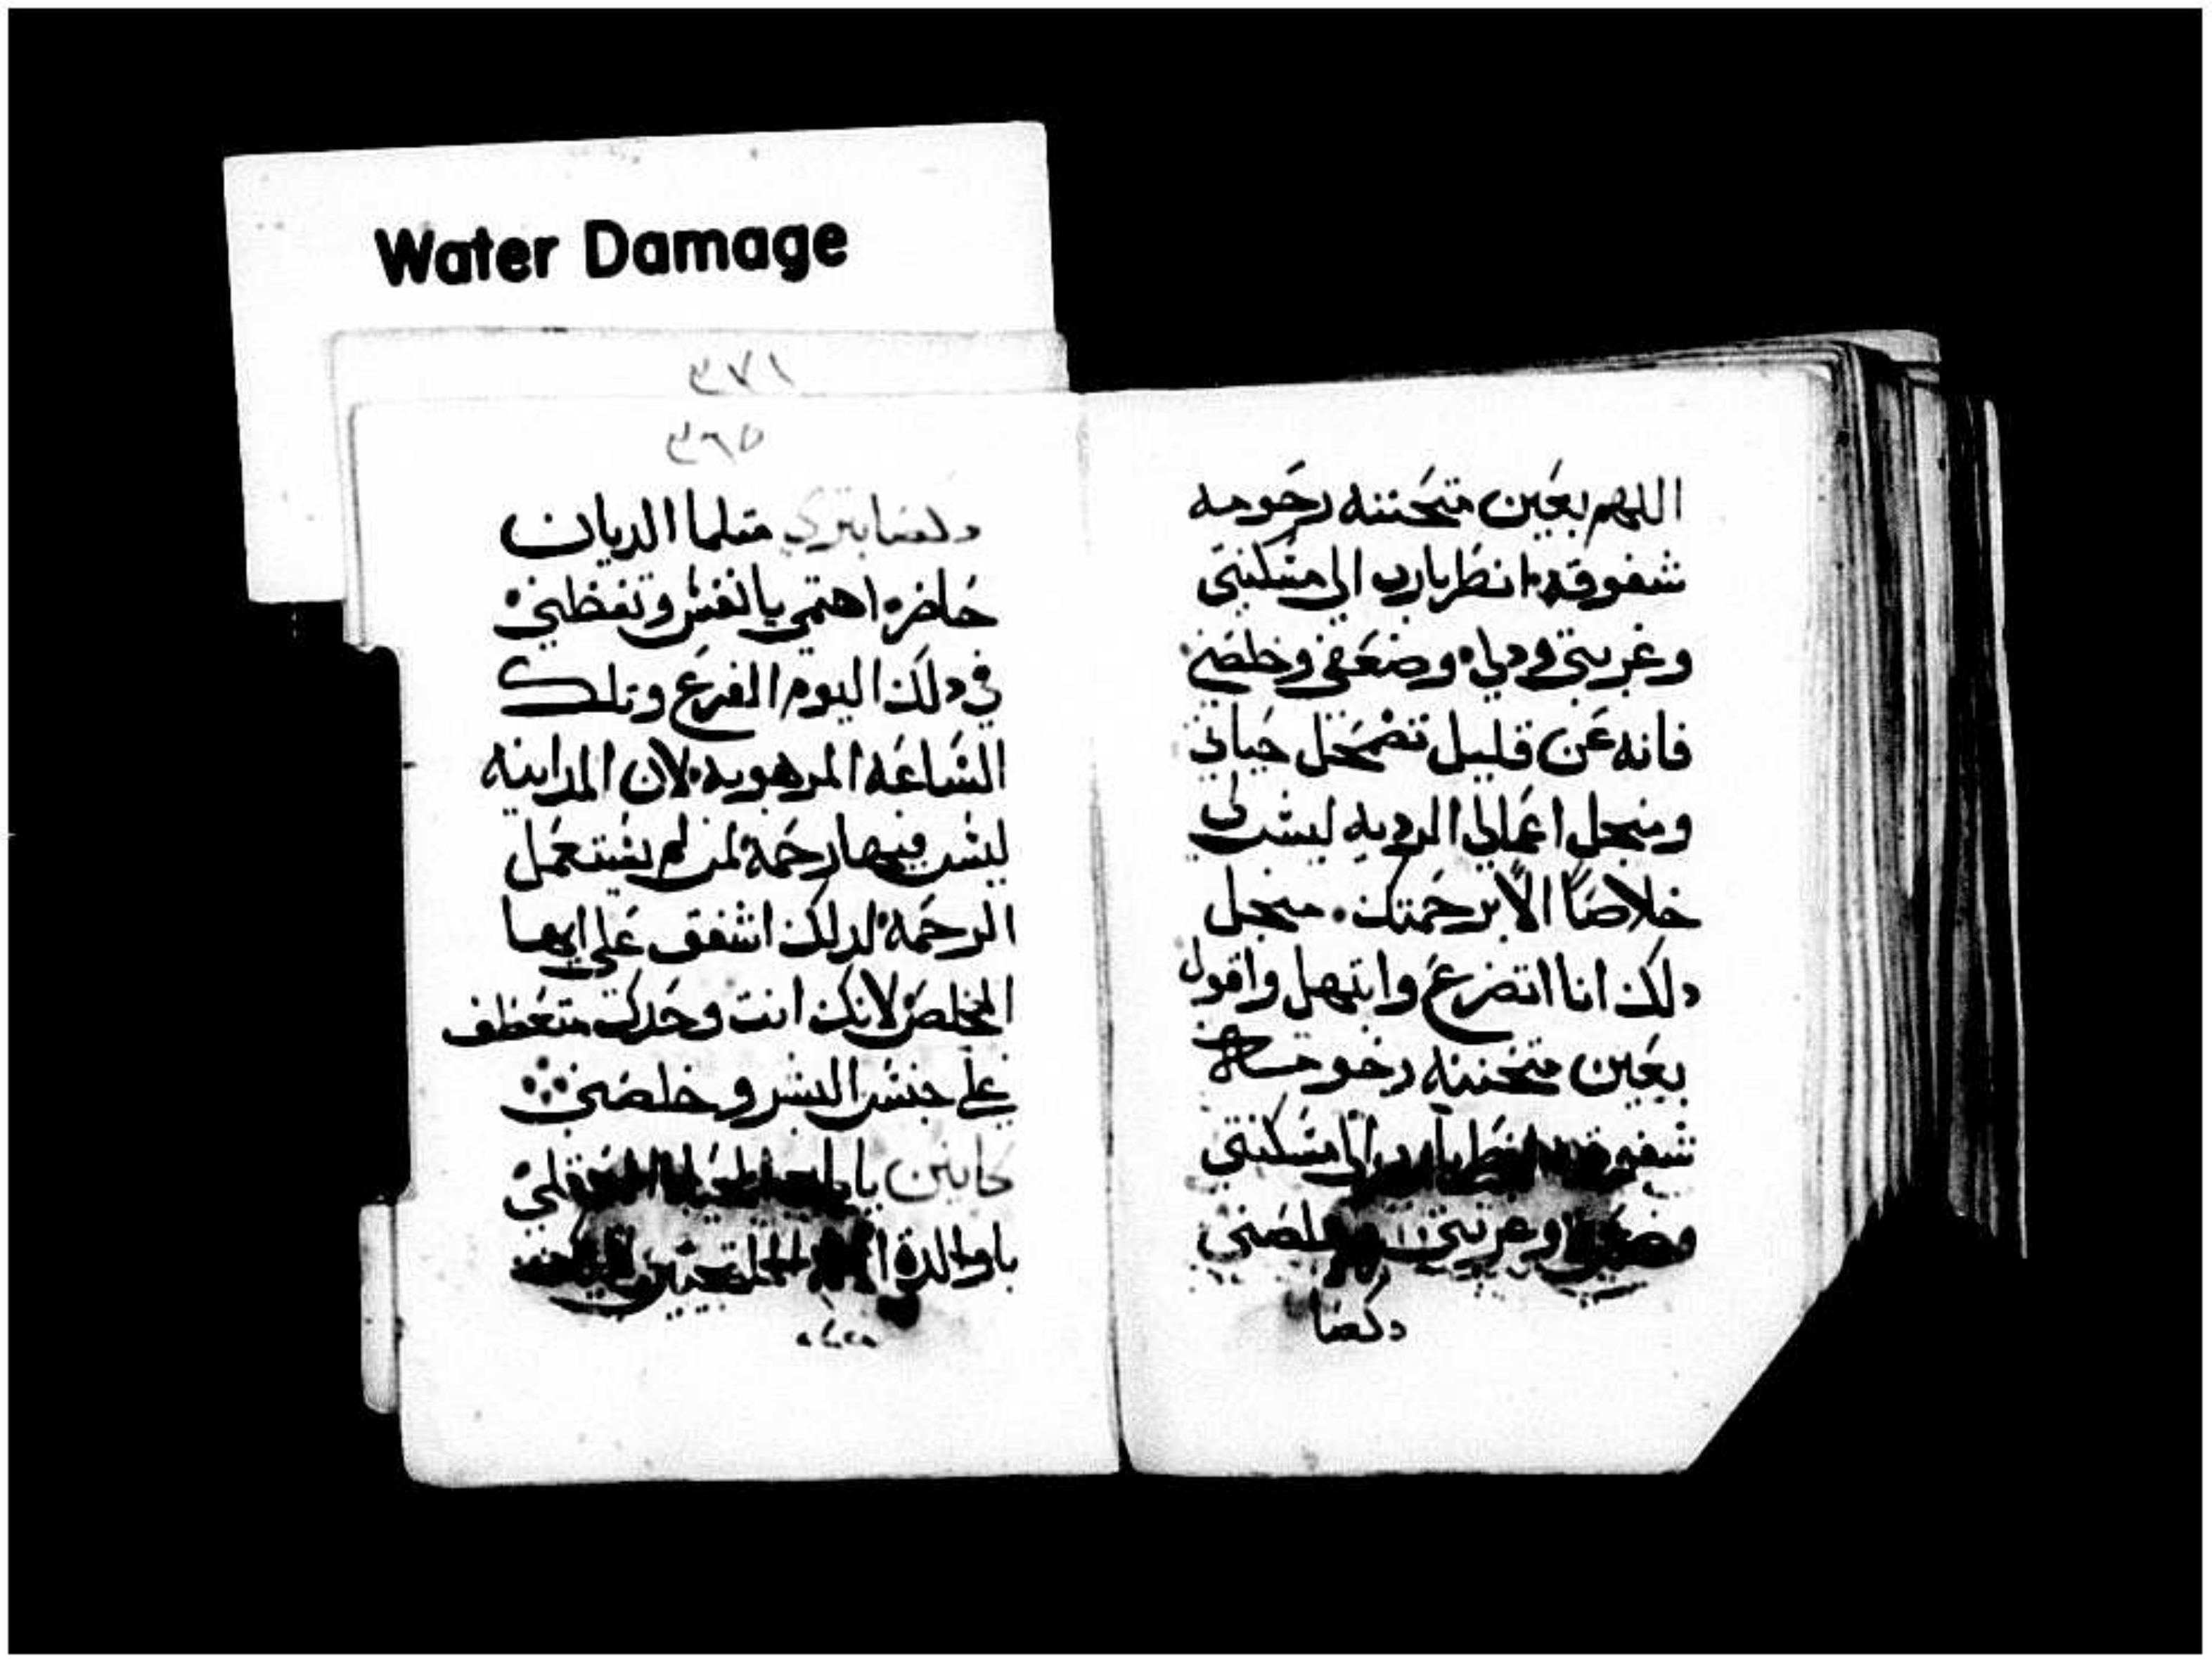 Water Damage
٣٧١
٣٦٥
اللهم بعين متحننه رحومه
شفوقه انظر يارب الي مسكنتي
وغربتي ودلي وضعفي وخلصني
فانه عن قليل تضمحل حياتي
ومنجل اعمالي الرديه ليس لي
خلاصًا الا برحمتك. منجل
دلك انا اتضرع وابتهل واقول
بعين متحننه رحومه
شفوقه انظر يارب الي مسكنتي
وضعفي وغربتي وخلصني
دكصا
دكصابتري متلما الديان
حاضر اهتمي يا نفس وتغظني
في دلك اليوم المفزع وتلك
الساعه المرهوبه لان المداينه
ليس فيها رحمة لمن لم يستعمل
الرحمة لدلك اشفق علي ايها
المخلص لانك انت وحدك متعطف
علي جنس البشر وخلصني
كانين يا قلبي
يا والدة الملتجيين